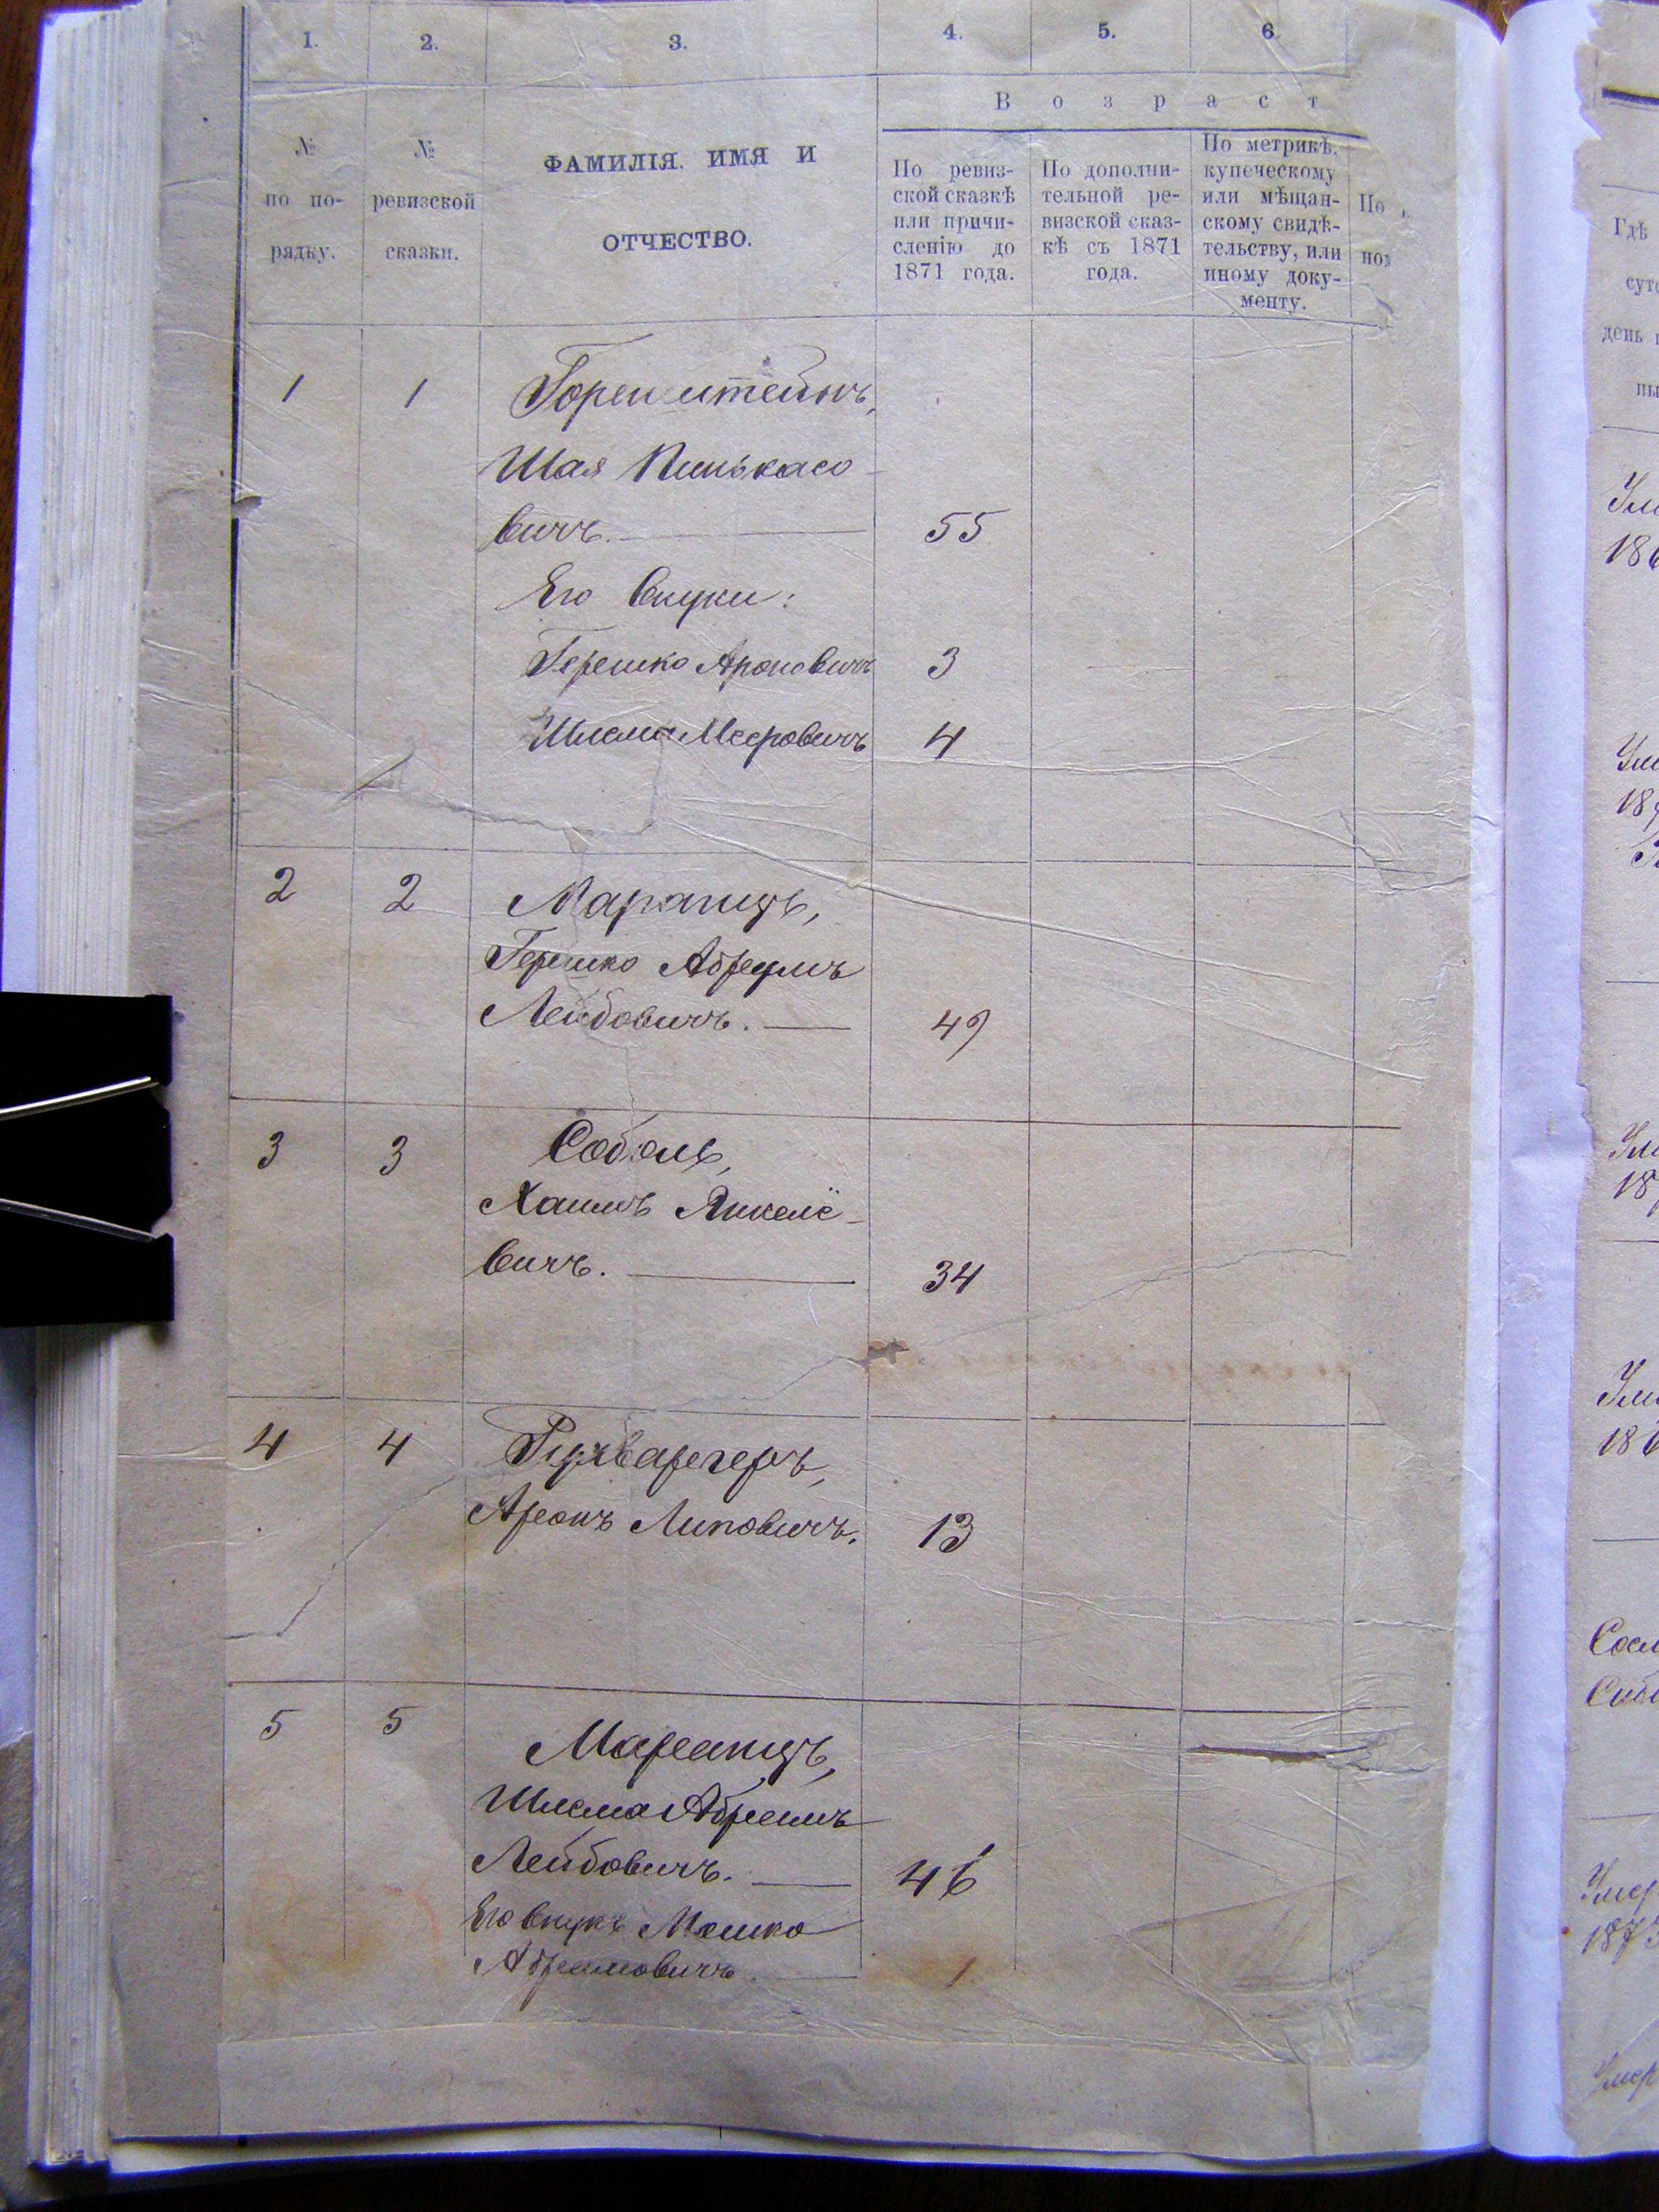 1. 2. 3. 4. 5. 6.
Возраст
№ по по-рядку.
№ ревизской сказки.
ФАМИЛІЯ, ИМЯ И
ОТЧЕСТВО.
По ревиз-
ской сказкѣ
или причи-
сленію до
1871 года.
По дополни-
тельной ре-
визской сказ-
кѣ съ 1871
года.
По метрикѣ,
купеческому
или мѣщан-
скому свидѣ-
тельству, или
иному доку-
менту.
По
Гдѣ
день
1 1 Горенштейнъ,
Шая Пинькасо-
вичъ. 55
Его внуки:
Гершко Ароновичъ 3
Шлема Мееровичъ 4
2 2 Маранцъ,
Гершко Абрумъ
Лейбовичъ. 49
3 3 Соболь,
Хаимъ Янкелё-
вичъ. 34
4 4
Аронъ Липовичъ. 13
5 5 Маранцъ,
Шлема Абрамъ
Лейбовичъ. 46
Его внукъ Мошко
Абрамовичъ 1
Умер
1873
Умер